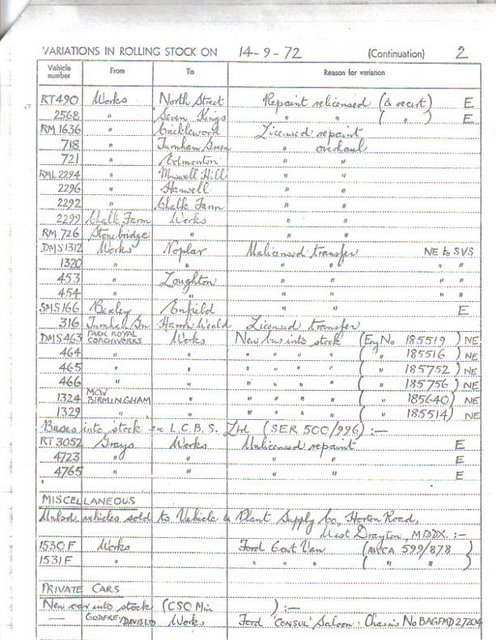 VARIATIONS IN ROLLING STOCK ON 14-9-72 (Continuation) 2
Vehicle number From To Reason for variation
RT490 Works North Street Repaint relicensed (& recert) E
2568 " Seven Kings " " ( " ) E
RM1636 " Cricklewood Licensed repaint
718 " Turnham Green " overhaul
721 " Edmonton " "
RML2294 " Muswell Hill " "
2296 " Hanwell " "
2292 " Chalk Farm " "
2299 Chalk Farm Works " "
RM726 Stonebridge " " "
DMS1312 Works Poplar Unlicensed transfer NE to SVS
1320 " " " " " "
453 " Loughton " " " "
454 " " " " " "
SMS166 Bexley Enfield " " E
316 Turnham Gn Harrow Weald Licensed transfer
DMS463 PARK ROYAL COACHWORKS Works New bus into stock (Eng No 185519) NE
464 " " " " " ( " 185516) NE
465 " " " " " ( " 185752) NE
466 " " " " " ( " 185756) NE
1324 MCW BIRMINGHAM " " " " ( " 185640) NE
1329 " " " " " ( " 185514) NE
Buses into stock ex L.C.B.S. Ltd (SER 500/996) :—
RT3052 Grays Works Unlicensed repaint E
4723 " " " " E
4765 " " " " E
MISCELLANEOUS
vehicles sold to Vehicle & Plant Supply Co, Horton Road,
West Drayton, MDDX. :—
1530F Works Ford 6cwt Van (AVCA 599/878)
1531F " " " "
PRIVATE CARS
New car into stock (CSO Min ) :—
— GODFREY DAVIS LTD Works Ford "CONSUL" Saloon: Chassis No BAGFMD27204